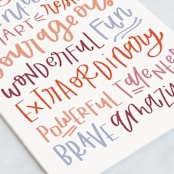 SMART & RES
courageous
WONDERFUL FUN
EXTRAORDINARY
POWERFUL TALENTED
BRAVE amazing